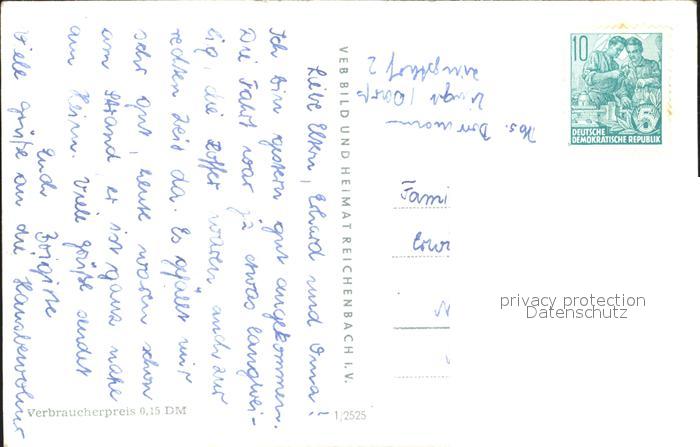 Liebe Eltern, Erhard und Oma!
Ich bin gestern gut angekommen.
Die Fahrt war ja etwas langwei-
lig, die Koffer waren auch zur
rechten Zeit da. Es gefällt mir
sehr gut, heute waren schon
am Strand, er ist ganz nahe
am Heim. Viele Grüße sendet
Euch Brigitte
Viele Grüße an die Hausbewohner
VEB BILD UND HEIMAT REICHENBACH I. V.
Abs.
2
10
DEUTSCHE
DEMOKRATISCHE REPUBLIK
Fami
Erwi
privacy protection
Datenschutz
Verbraucherpreis 0,15 DM
1/2525